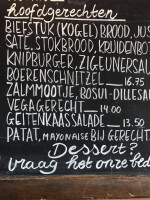 hoofdgerechten
BIEFSTUK (KOGEL) BROOD, JUS
SATÉ, STOKBROOD, KRUIDENBOT
KNIPBURGER, ZIGEUNERSAU
BOERENSCHNITZEL — 16.75
ZALMMOOTJE, BOSUI-DILLESA
VEGAGERECHT — 14.00
GEITENKAASSALADE — 13.50
PATAT, MAYONAISE BIJ GERECHT
Dessert?
vraag het onze bed